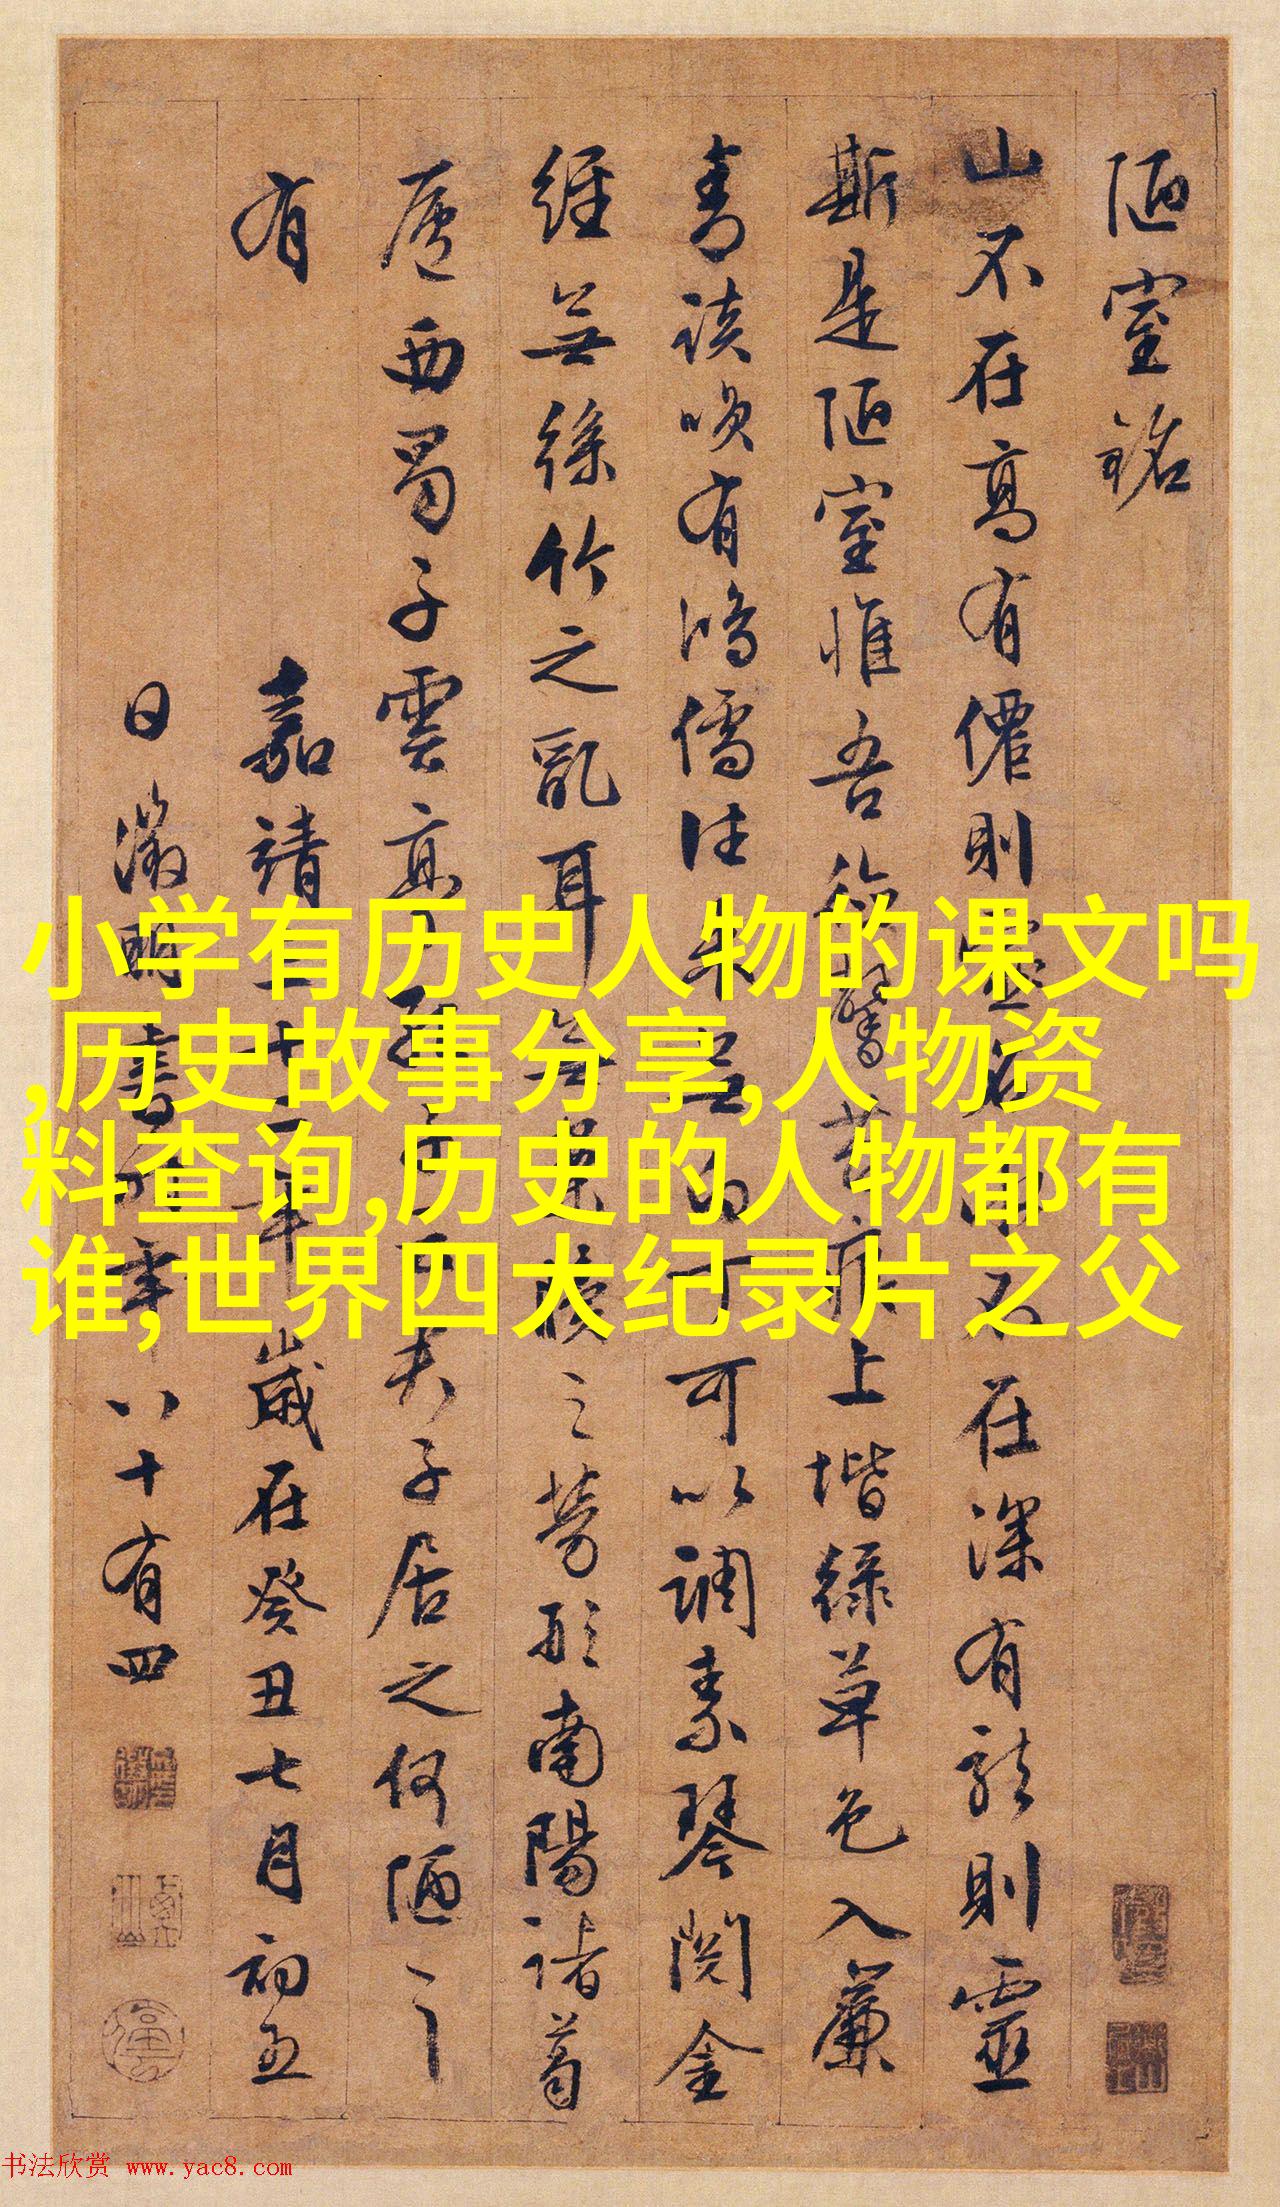 陋室銘
山不在高有僊則名水不在深有龍則靈
斯是陋室惟吾德馨苔痕上堦綠草色入簾
青談唉有鴻儒往來無白丁可以調素琴閱金
經無絲竹之亂耳無案牘之勞形南陽諸葛
廬西蜀子雲亭孔子云夫子居之何陋之
有
嘉靖三十二年歲在癸丑七月初五
日徵明書時年八十有四
小学有历史人物的课文吗
,历史故事分享,人物资
料查询,历史的人物都有
谁,世界四大纪录片之父
书法欣赏 www.yac8.com